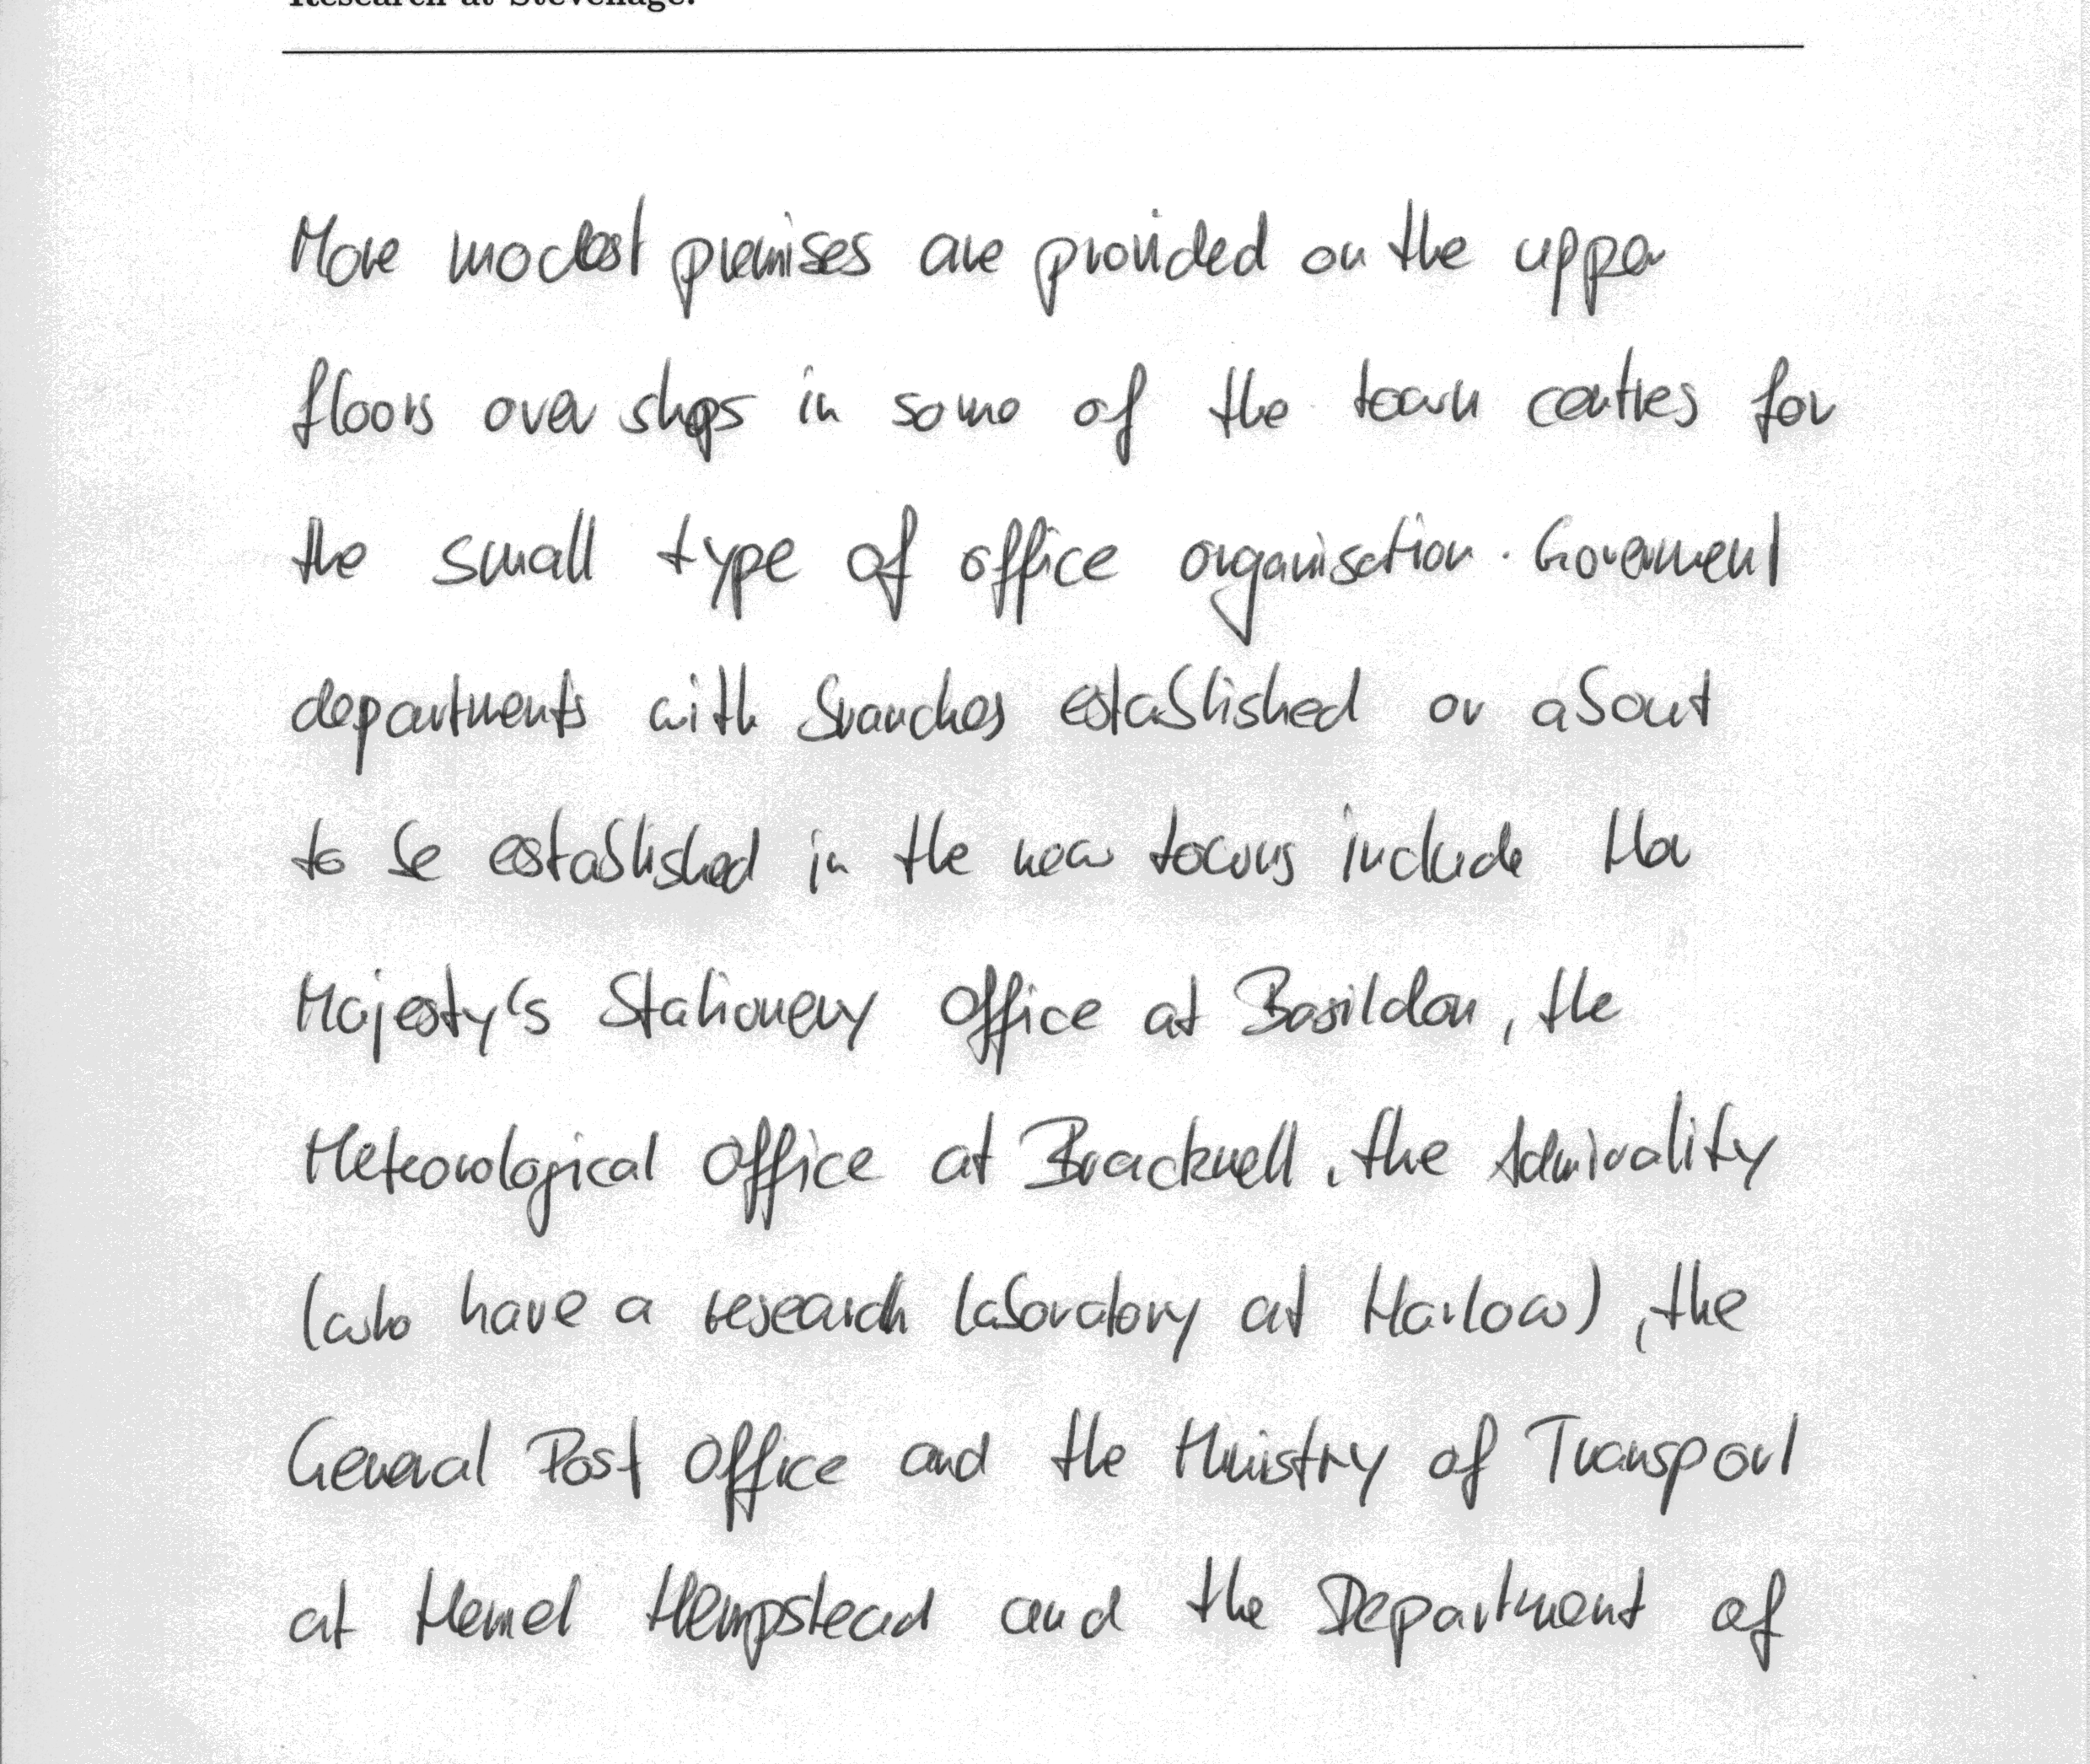 Research at Stevenage.
More modest premises are provided on the upper
floors over shops in some of the town centres for
the small type of office organisation. Goverment
departments with branches established or about
to be established in the new towns include Her
Majesty's Stationery Office at Basildon, the
Meteorological Office at Bracknell, the Admirality
(who have a research laboratory at Harlow), the
General Post Office and the Ministry of Transport
at Hemel Hempstead and the Department of